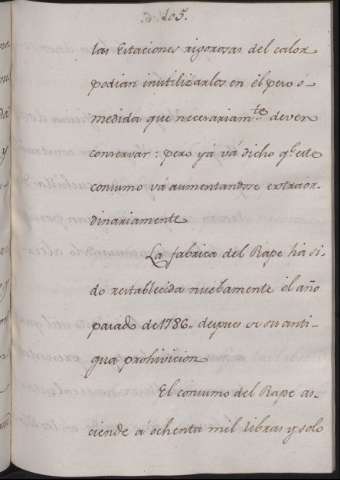 105.
las Estaciones rigorosas del calor
podian inutilizarlos en el pero ó
medida que necesariam.te deven
conservar: pero yá vá dicho q.e este
consumo vá aumentandose extraor-
dinariamente
La fabrica del Rape há si-
do restablecida nuebamente el año
pasado de 1786. depues de su anti-
gua prohivicion
El consumo del Rape as-
ciende a ochenta mil libras y solo